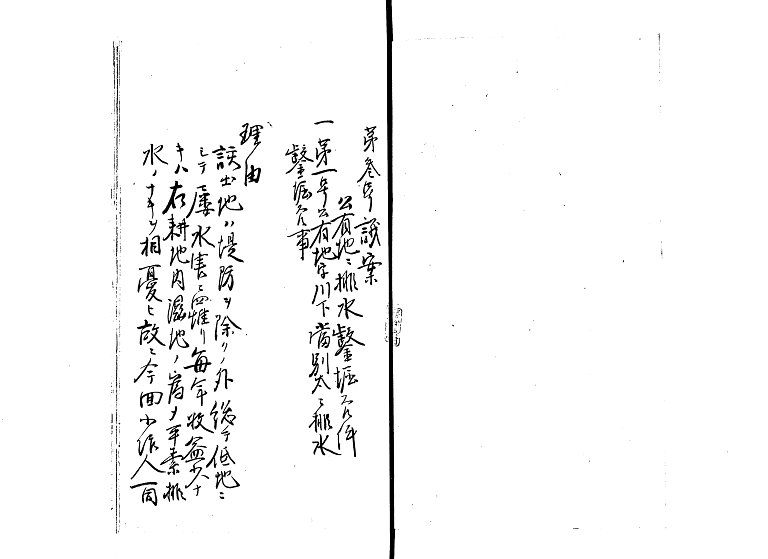 第参号議案
公有地ニ排水鑿堀スル件
一第一号公有地字川下当別太ニ排水
鑿堀スル事
理由
該土地ハ堤防ヲ除クノ外総テ低地ニ
シテ屡水害ニ罹リ毎年収益少ナ
キハ右耕地内湿地ノ為メ平素排
水ノナキヲ相憂ヒ故ニ今回小作人一同